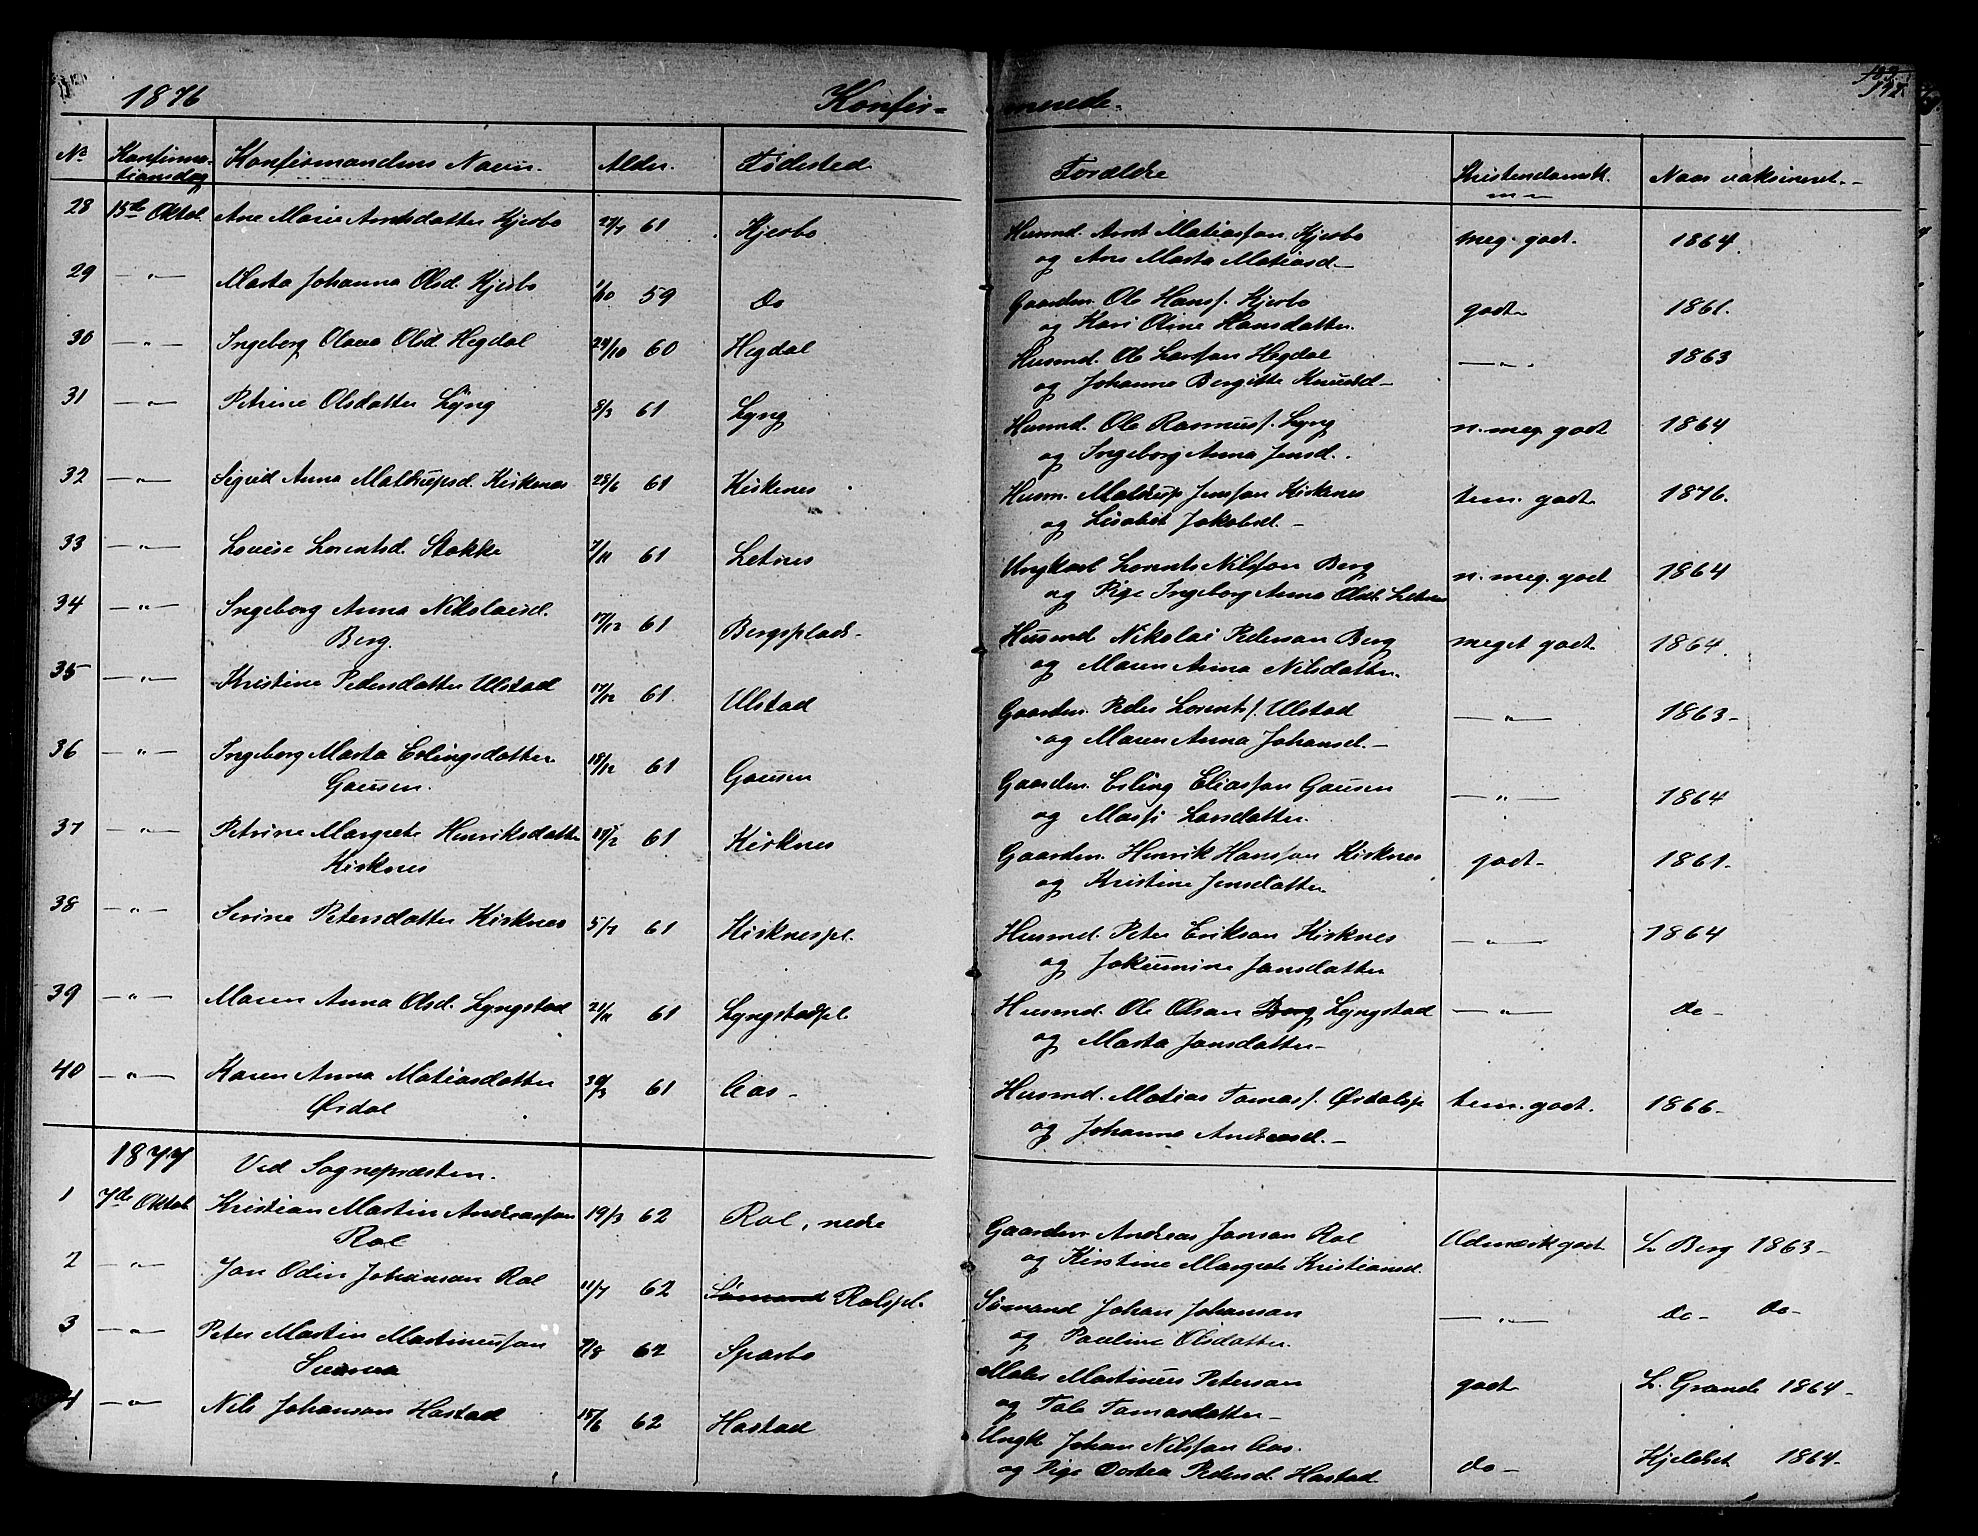 1876 Konfir= merede.
No Konfirma- Konfirmandens Navn. Alder. Fødested Forældre Kristendomsk. Naar vaksineret.
tionsdag
28 15de Oktob. Ane Marie Arntsdatter Kjerbo 27/7 61 Kjerbo Husmd. Arnt Matiassøn Kjerbo meg. godt. 1864.
og Ane Marta Matiasd.
29 — " — Marta Johanna Olsd. Kjerbo 1/10 59 Do Gaardm. Ole Hanss. Kjerbo godt 1861.
og Kari Oline Hansdatter.
30 — " — Ingeborg Olava Olsd. Hegdal 24/10 60 Hegdal Husmd. Ole Larssøn Hegdal — " — 1863
og Johanna Bergitte Knutsd.
31 — " — Petrine Olsdatter Lyng 8/3 61 Lyng Husmd. Ole Rasmuss. Lyng n. meg. godt 1864
og Ingeborg Anna Jensd.
32 — " — Sigrid Anna Maltrupsd. Kirkenes 28/6 61 Kirkenes Husm. Maltrup Jenssøn Kirkenes tem. godt 1876.
og Lisabet Jakobsd.
33 — " — Lovise Lorentsd. Stokke 7/11 61 Letnes Ungkarl Lorents Nilssøn Berg n. meg. godt 1864
og Pige Ingeborg Anna Olsd. Letnes
34 — " — Ingeborg Anna Nikolaisd. 17/12 61 Bergsplads Husmd. Nikolai Pedersen Berg meget godt 1864.
Berg. og Maren Anna Nilsdatter.
35 — " — Kristine Pedersdatter Ulstad 17/12 61. Ulstad Gaardm. Peder Lorents. Ulstad — " — 1863
og Maren Anna Johansd.
36 — " — Ingeborg Marta Erlingsdatter 18/12 61 Gausen Gaardm. Erling Eliassøn Gausen — " — 1864
Gausen. og Massi Larsdatter.
37 — " — Petrine Margrete Henriksdatter 61 Kirknes Gaardm. Henrik Hanssøn Kirknes godt 1861.
Kirknes og Kristine Jensdatter
38 — " — Serine Petersdatter Kirknes 5/7 61 Kirknespl. Husmd. Peter Erikson Kirknes — " — 1864
og Jokumine Jansdatter
39 — " — Maren Anna Olsd. Lyngstad 21/11 61 Lyngstadpl. Husmd. Ole Olsen Berg Lyngstad — " — do
og Marta Jansdatter
40 — " — Karen Anna Matiasdatter 30/3 61 Aas Husmd. Matias Tomass. Øidalspl tem. godt. 1866
Øidal og Johanna Andreasd.
1877 Ved Sognepræsten.
1 7de Oktob. Kristian Martin Andreassøn 19/3 62 Rol, nedre Gaardm Andreas Jonsen Rol Udmærk godt L. Berg 1863
Rol og Kirstine Margrete Kristiansd.
2 — " — Jon Odin Johansen Rol 11/7 62 Sømand Rolspl. Sømand Johan Johansen — " — do do
og Pauline Olsdatter.
3 — " — Peter Martin Martinussøn 7/8 62 Sparbo Maler Martinus Petersen godt L. Grande 1864
Sunnva og Tale Tomasdatter
4 — " — Nils Johansen Hastad 15/6 62 Hastad Ungk Johan Nilssøn Aas. do Hjeldset 1864
og Pige Dortea Pedersd. Hastad